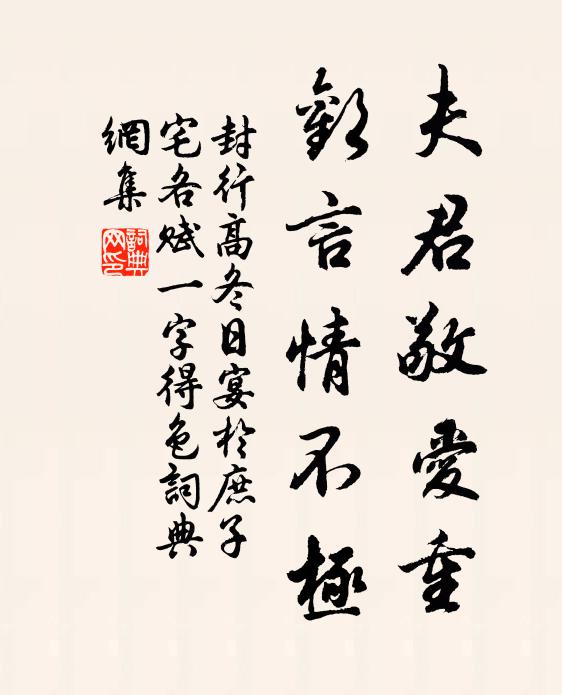 夫君敬愛重
歡言情不極
封行高冬日宴於庶子
宅各賦一字得色詞典
網集
詞典
网印